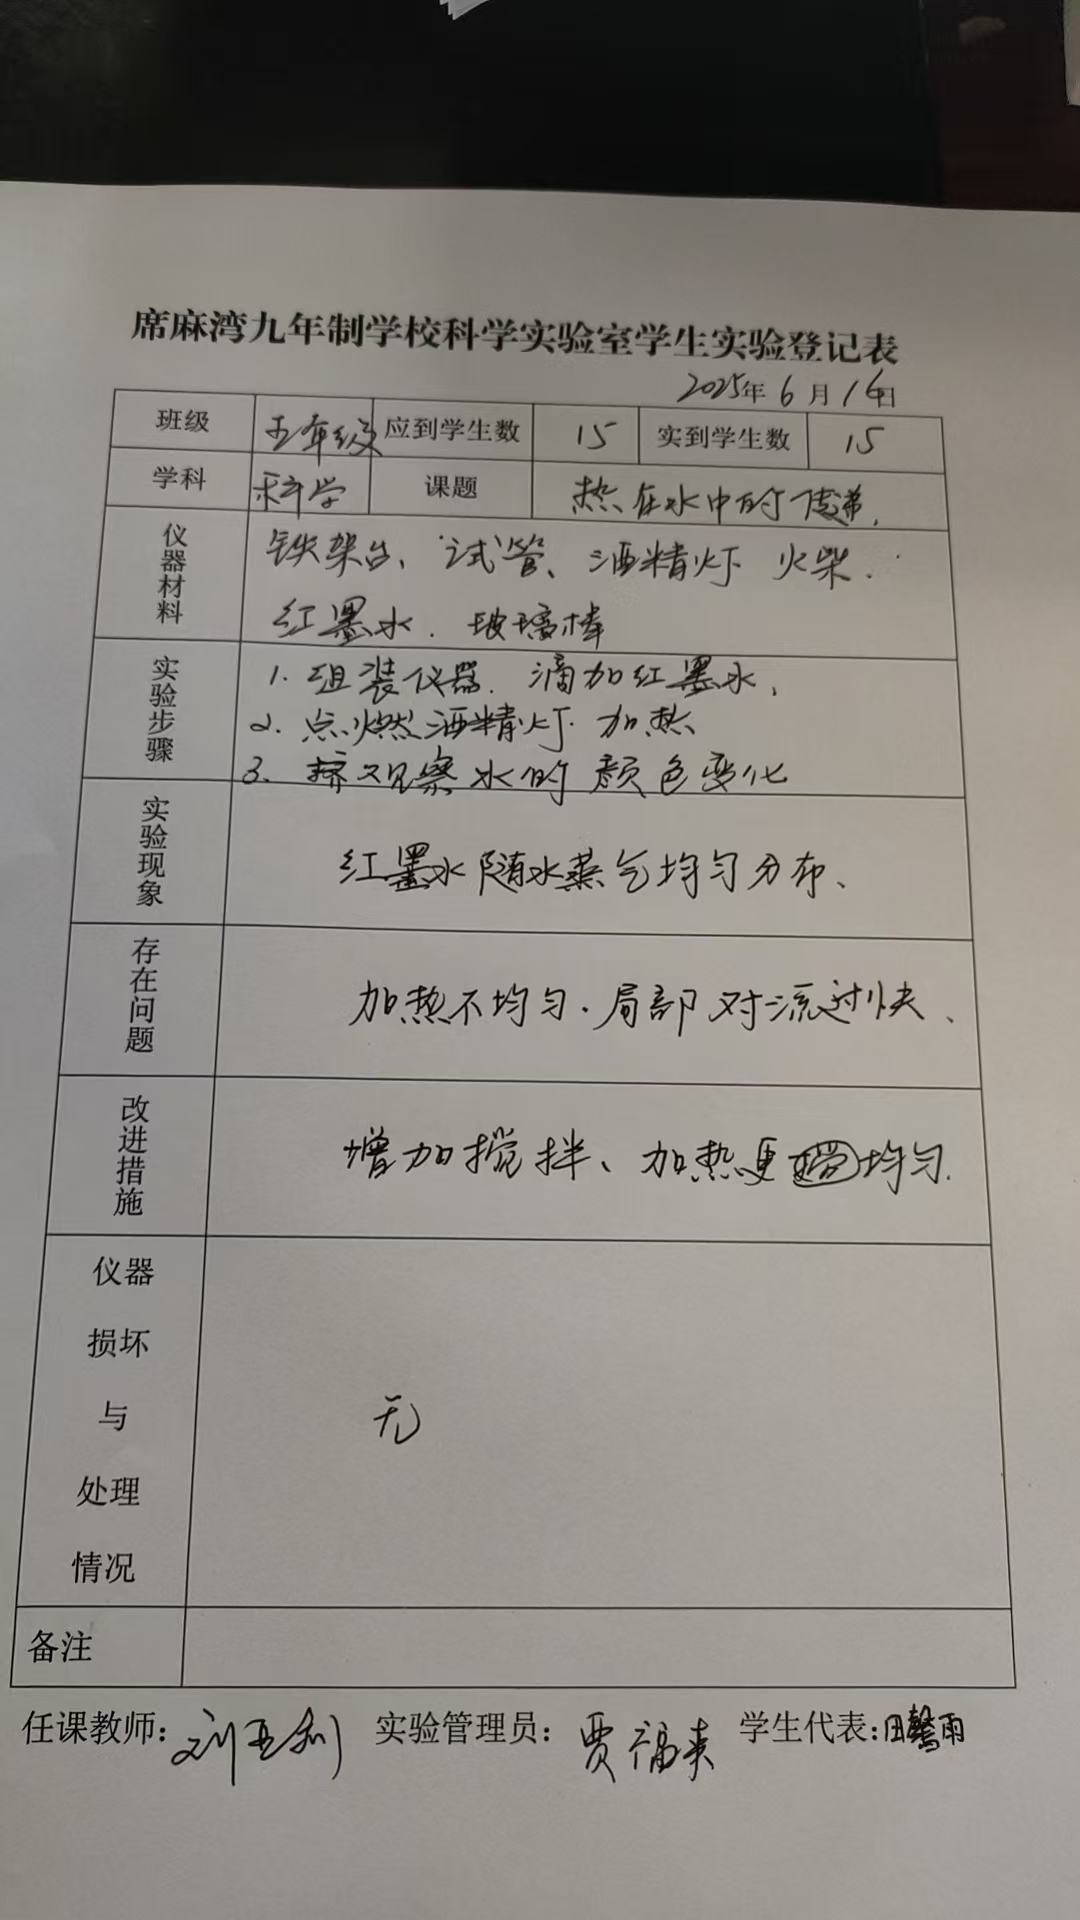 席麻湾九年制学校科学实验室学生实验登记表
2025年6月16日
班级 五年级 应到学生数 15 实到学生数 15
学科 科学 课题 热在水中的传递.
仪器材料 铁架台、试管、酒精灯 火柴.
红墨水. 玻璃棒
实验步骤 1. 组装仪器. 滴加红墨水.
2. 点燃酒精灯 加热
3. 观察水的颜色变化
实验现象 红墨水随水蒸气均匀分布、
存在问题 加热不均匀. 局部对流过快、
改进措施 增加搅拌、加热更均匀.
仪器
损坏
与
处理
情况
无
备注
任课教师: 刘亚利 实验管理员: 贾福 学生代表: 田馨雨